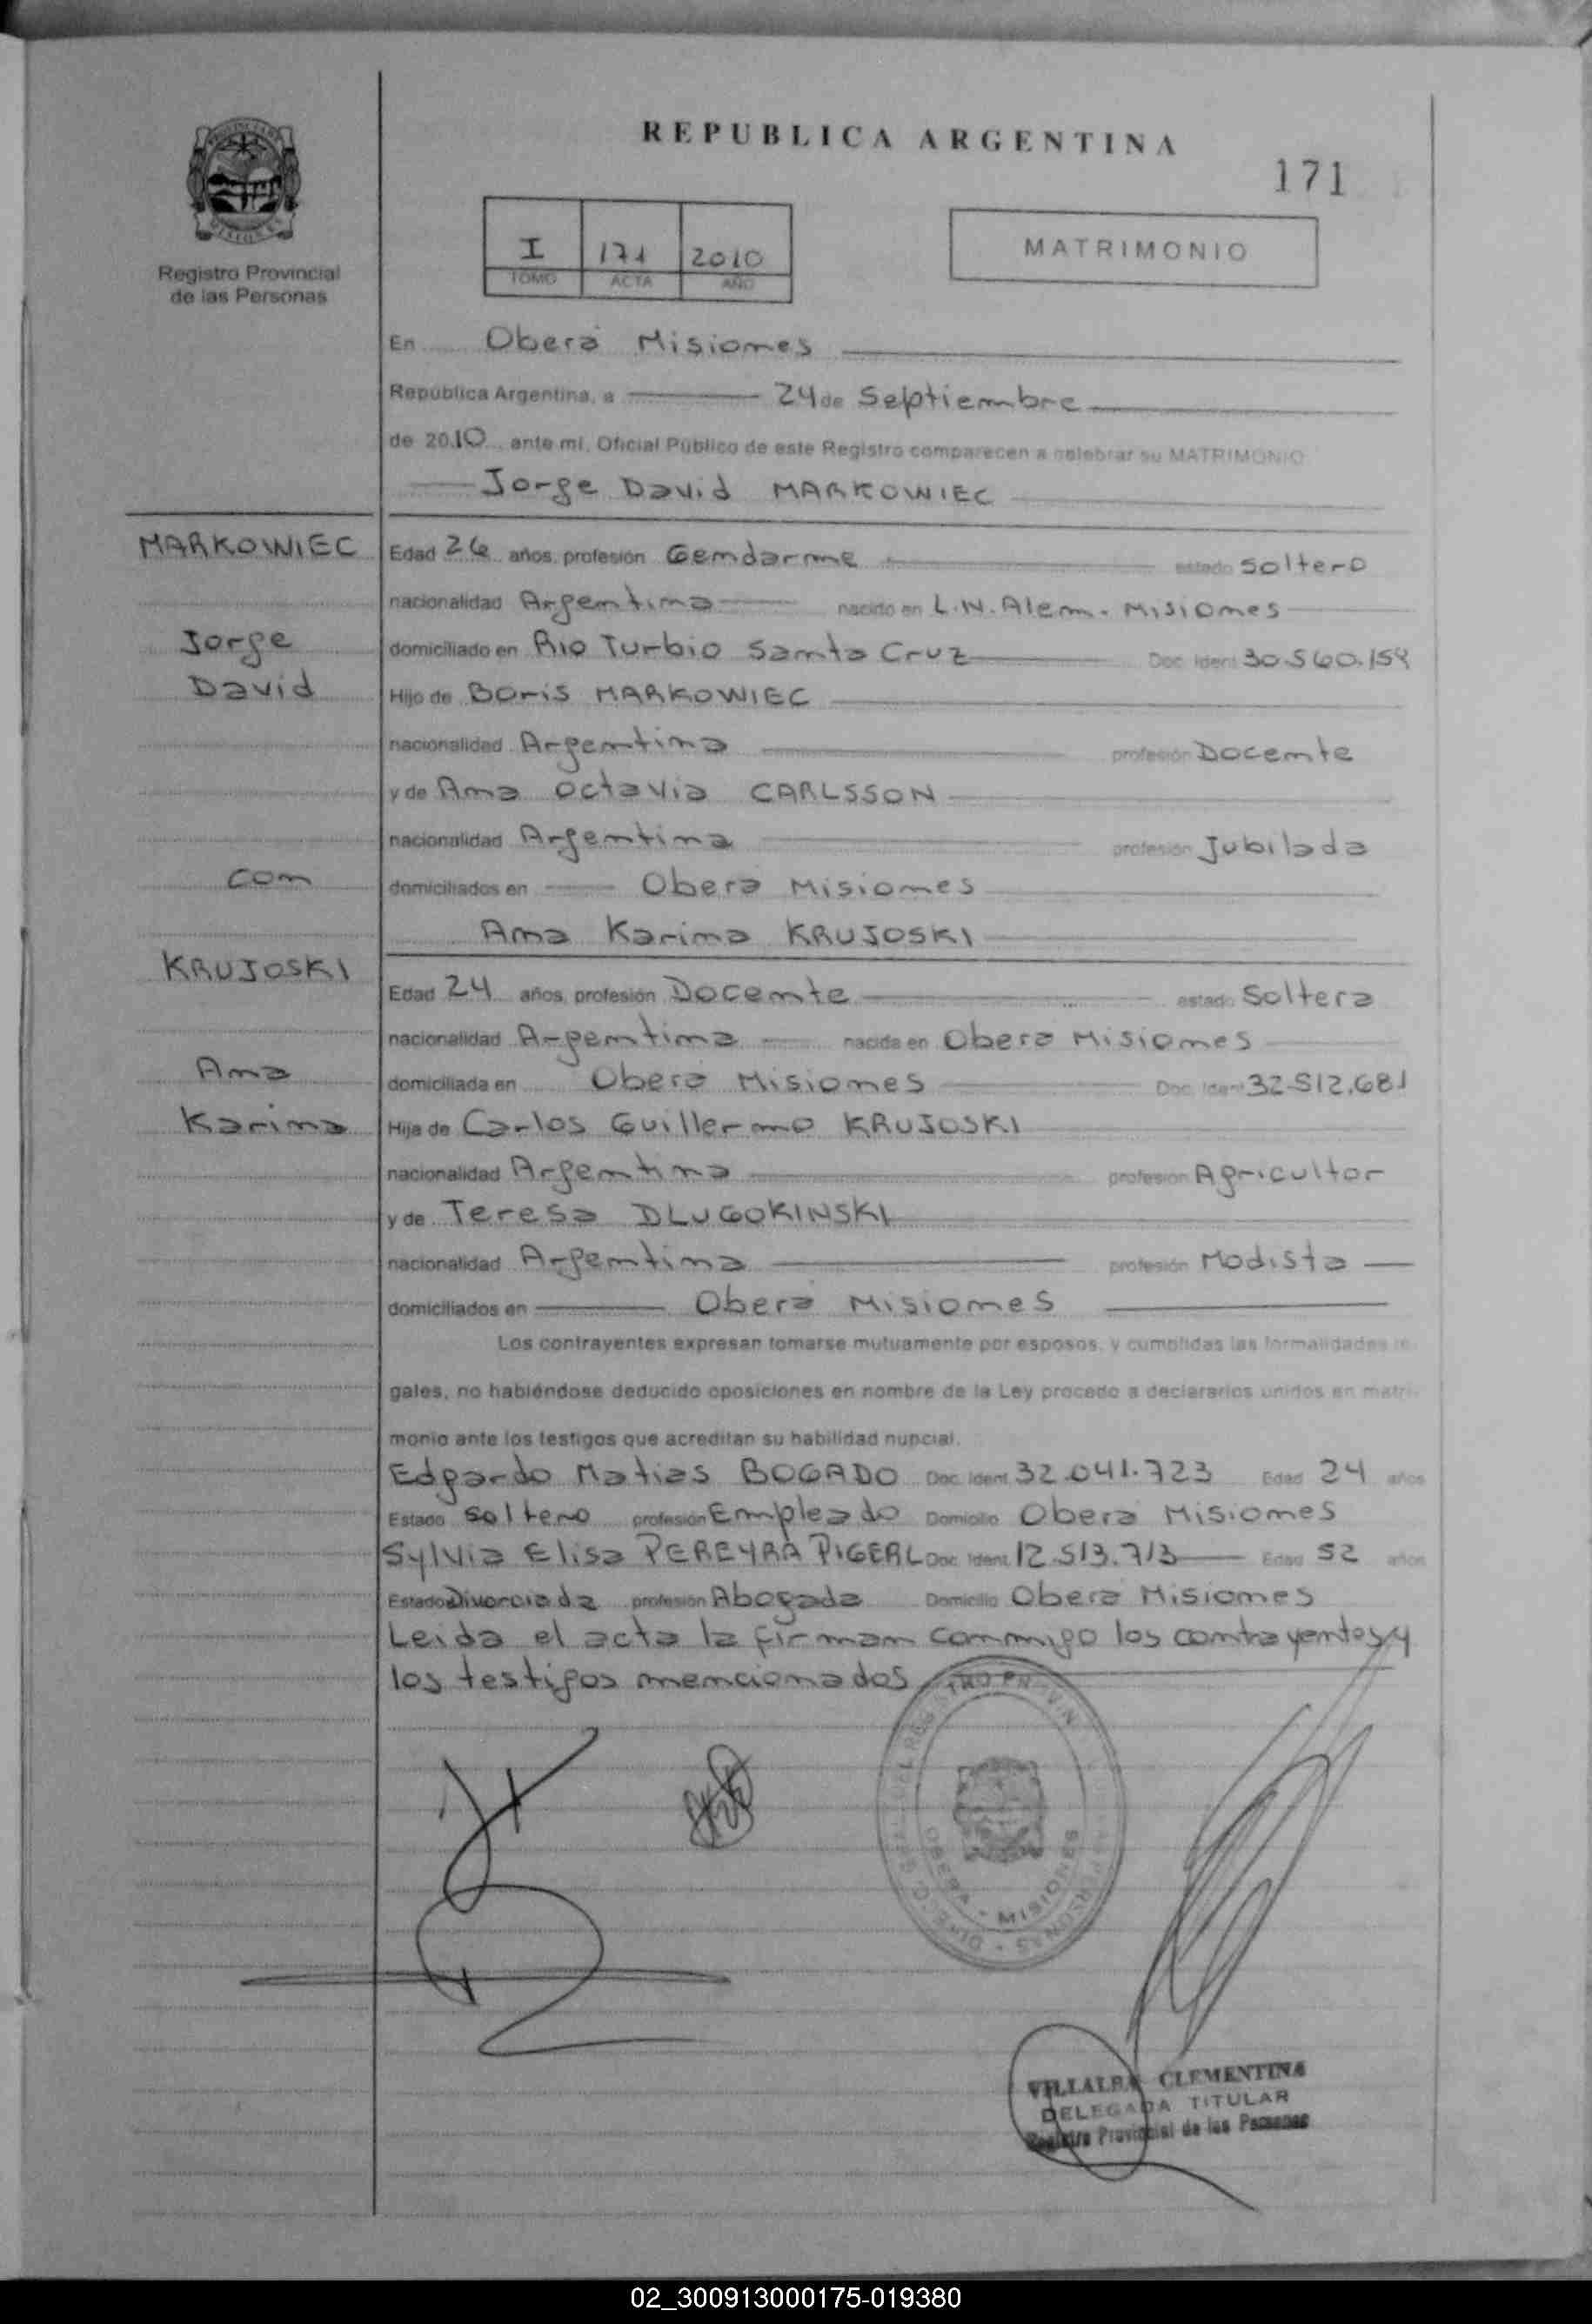 REPUBLICA ARGENTINA
171
Registro Provincial
de las Personas
I 171 2010
TOMO ACTA AÑO
MATRIMONIO
En Oberá Misiones
República Argentina, a 24 de Septiembre
de 2010 ante mí, Oficial Público de este Registro comparecen a celebrar su MATRIMONIO
Jorge David MARKOWIEC
MARKOWIEC
Jorge
David
con
KRUJOSKI
Ana
Karina
Edad 26 años, profesión Gendarme estado Soltero
nacionalidad Argentina nacido en L.N.Alem. Misiones
domiciliado en Rio Turbio Santa Cruz Doc. Ident. 30.560.159
Hijo de Boris MARKOWIEC
nacionalidad Argentina profesión Docente
y de Ana Octavia CARLSSON
nacionalidad Argentina profesión Jubilada
domiciliados en Oberá Misiones
Ana Karina KRUJOSKI
Edad 24 años, profesión Docente estado Soltera
nacionalidad Argentina nacida en Oberá Misiones
domiciliada en Oberá Misiones Doc. Ident. 32.512.681
Hija de Carlos Guillermo KRUJOSKI
nacionalidad Argentina profesión Agricultor
y de Teresa DLUGOKINSKI
nacionalidad Argentina profesión Modista
domiciliados en Oberá Misiones
Los contrayentes expresan tomarse mutuamente por esposos, y cumplidas las formalidades le-
gales, no habiéndose deducido oposiciones en nombre de la Ley procedo a declararlos unidos en matri-
monio ante los testigos que acreditan su habilidad nupcial.
Edgardo Matias BOGADO Doc. Ident. 32.041.723 Edad 24 años
Estado Soltero profesión Empleado Domicilio Oberá Misiones
Sylvia Elisa PEREYRA PIGERL Doc. Ident. 12.513.713 Edad 52 años
Estado Divorciada profesión Abogada Domicilio Oberá Misiones
Leida el acta la firman conmigo los contrayentes y
los testigos mencionados
OBERA - MISIONES
VILLALBA CLEMENTINA
DELEGADA TITULAR
Registro Provincial de las Personas
02_300913000175-019380